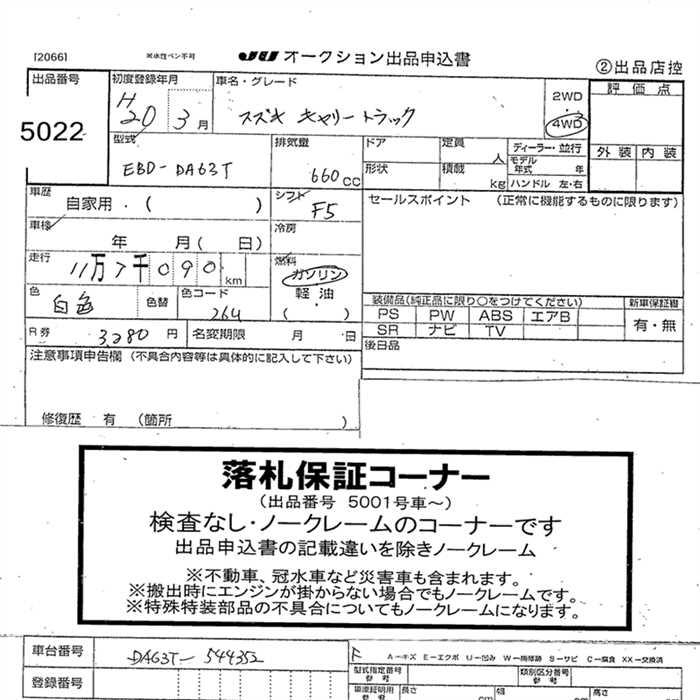 [2066] 耐水性ペン不可 JU オークション出品申込書 ②出品店控
出品番号 初度登録年月 車名・グレード 2WD 評価点
5022 H20 3月 スズキ キャリートラック 4WD
型式 排気量 ドア 定員 ディーラー・並行 外装 内装
EBD-DA63T 660cc 形状 積載 人 モデル年式 年
kg ハンドル 左・右
車歴 自家用・( ) シフト F5 セールスポイント (正常に機能するものに限ります)
車検 年 月( 日) 冷房
走行 11万7千090km 燃料 ガソリン
軽油
色 白色 色替 色コード 264 ( ) 装備品(純正品に限り○をつけてください) 新車保証書
PS PW ABS エアB 有・無
R券 3,280円 名変期限 月 日 SR ナビ TV
注意事項申告欄(不具合内容等は具体的に記入して下さい) 後日品
修復歴 有 (箇所 )
落札保証コーナー
(出品番号 5001号車~)
検査なし・ノークレームのコーナーです
出品申込書の記載違いを除きノークレーム
※不動車、冠水車など災害車も含まれます。
※搬出時にエンジンが掛からない場合でもノークレームです。
※特殊特装部品の不具合についてもノークレームになります。
車台番号 DA63T-544352 F A-キズ E-エクボ U-凹み W-補修跡 S-サビ C-腐食 XX-交換済
登録番号 型式指定番号 参考 類別区分番号 参考
車庫証明用 参考 長さ cm 長さ cm